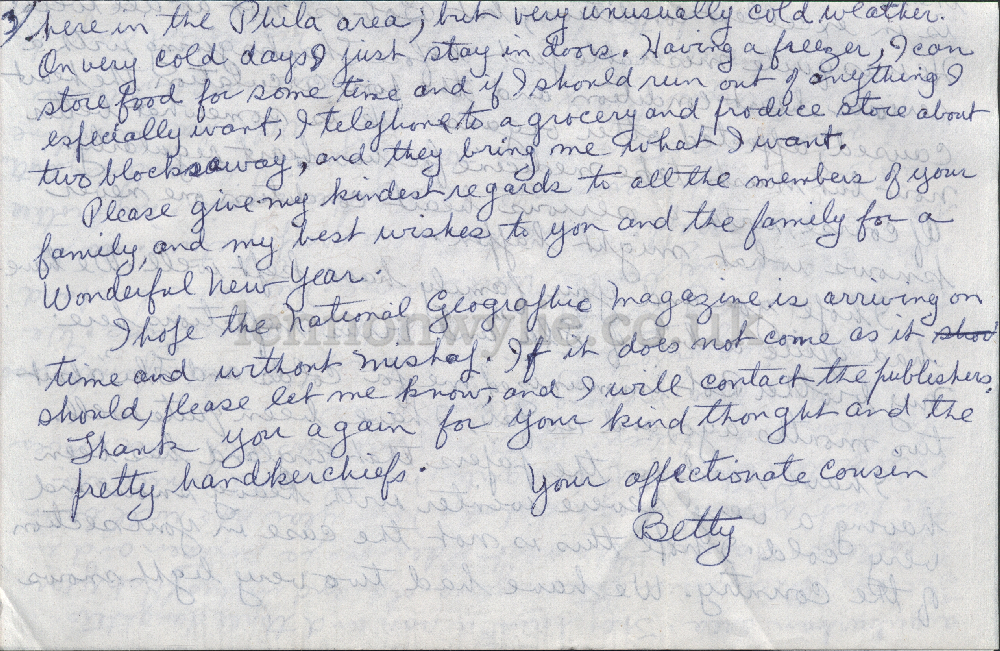 3/ here in the Phila area; but very unusually cold weather.
On very cold days I just stay in doors. Having a freezer, I can
store food for some time and if I should run out of anything I
especially want, I telephone to a grocery and produce store about
two blocks away, and they bring me what I want.
Please give my kindest regards to all the members of your
family, and my best wishes to you and the family for a
Wonderful New Year.
I hope the National Geographic Magazine is arriving on
time and without mishap. If it does not come as it
should, please let me know, and I will contact the publishers.
Thank you again for your kind thought and the
pretty handkerchiefs.
Your affectionate cousin
Betty
lennonwylie.co.uk